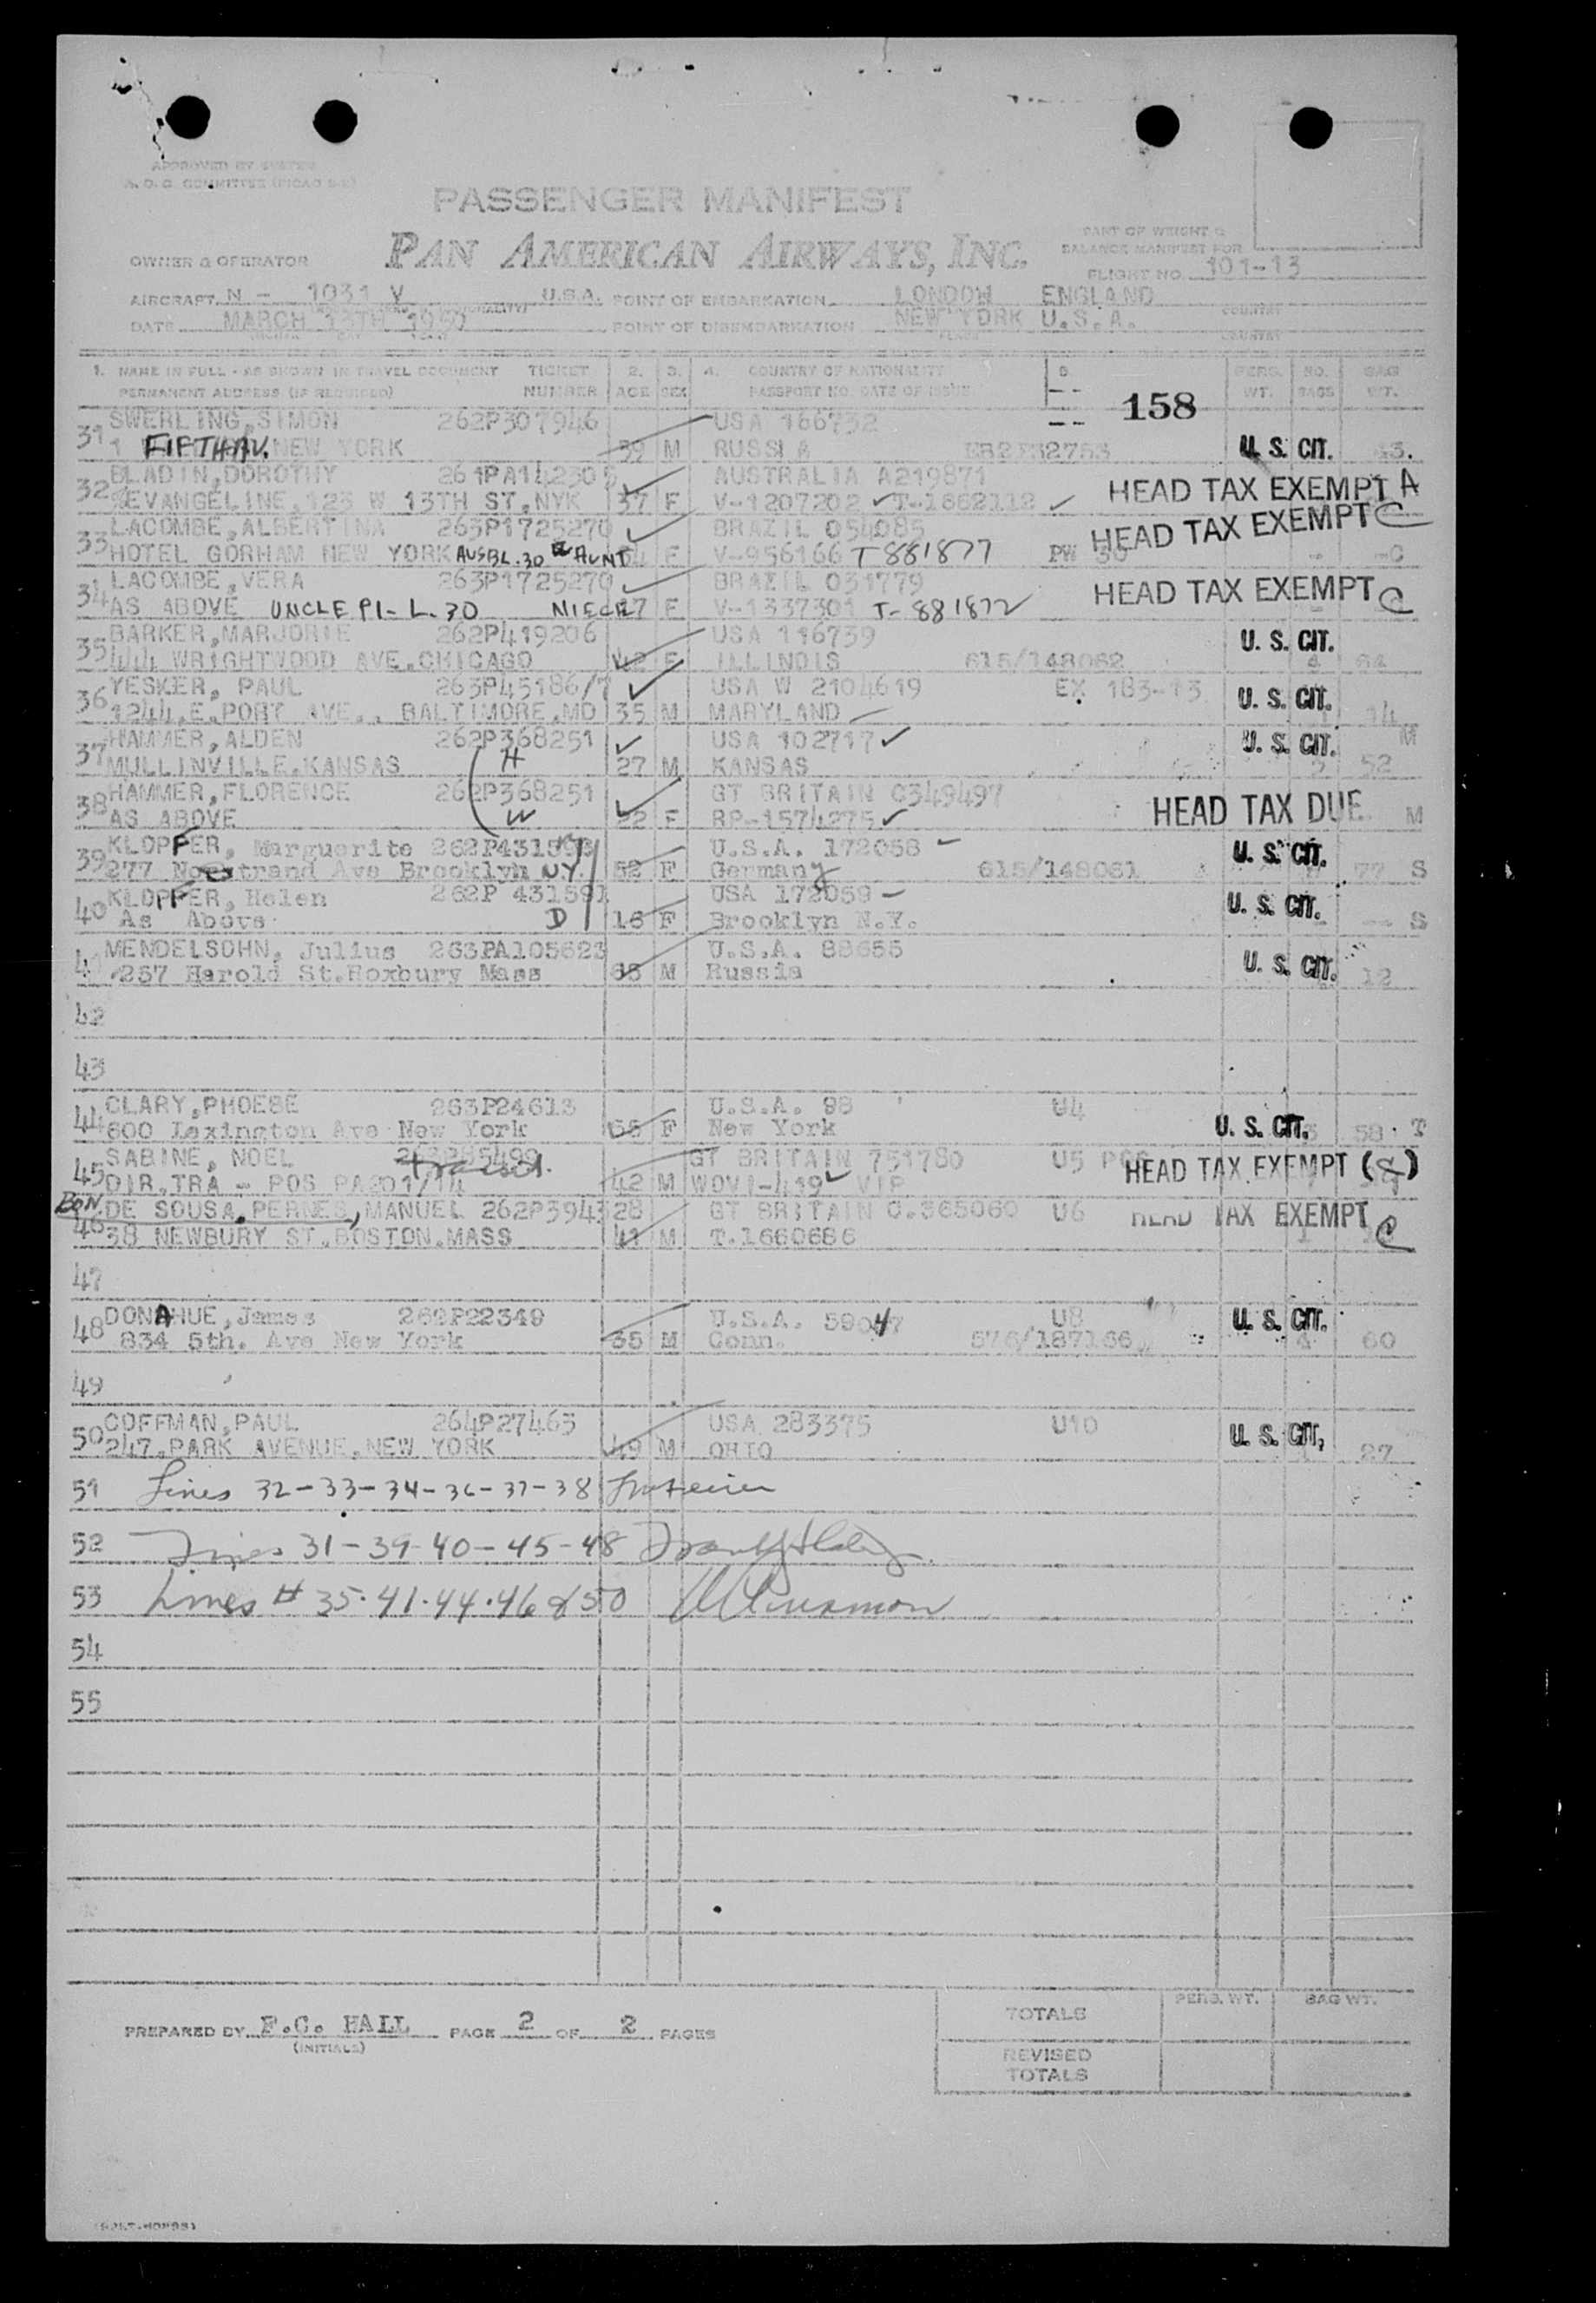 APPROVED BY SYSTEM
A.O.C. COMMITTEE
PASSENGER MANIFEST
PAN AMERICAN AIRWAYS, INC.
PART OF WEIGHT &
BALANCE MANIFEST FOR
OWNER & OPERATOR FLIGHT NO. 101-13
AIRCRAFT N - 1031 V U.S.A. POINT OF EMBARKATION LONDON ENGLAND
DATE MARCH 13TH POINT OF DISEMBARKATION NEW YORK U.S.A.
COUNTRY
PLACE COUNTRY
1. NAME IN FULL - AS SHOWN IN TRAVEL DOCUMENT TICKET 2. 3. 4. COUNTRY OF NATIONALITY 5. PERS. NO. BAG
PERMANENT ADDRESS (IF REQUIRED) NUMBER AGE SEX PASSPORT NO. DATE OF ISSUE WT. BAGS WT.
158
31 SWERLING, SIMON 262P307946 USA 166732
1 FIFTH AV. NEW YORK 59 M RUSSIA U. S. CIT. 43.
32 BLADIN, DOROTHY 261PA142305 AUSTRALIA A219871
EVANGELINE, 123 W 13TH ST, NYK 37 F V-1207202 T-1662112 HEAD TAX EXEMPT A
33 LACOMBE, ALBERTINA 263P1725270 BRAZIL 054085 HEAD TAX EXEMPT C
HOTEL GORHAM NEW YORK AUNT F V-956166 T 881877 PW 50 -C
34 LACOMBE, VERA 263P1725270 BRAZIL 031779
AS ABOVE UNCLE P1-L.30 NIECE 17 F V-1337301 T-881872 HEAD TAX EXEMPT C
35 BARKER, MARJORIE 262P419206 USA 116739 U. S. CIT.
444 WRIGHTWOOD AVE. CHICAGO 42 F ILLINOIS 615/148062 4 64
36 YESKER, PAUL 263P45186/7 USA W 2104619 EX 183-13 U. S. CIT.
1244, E. PORT AVE., BALTIMORE, MD 35 M MARYLAND 1 14
37 HAMMER, ALDEN 262P368251 USA 102717 U. S. CIT. M
MULLINVILLE, KANSAS H 27 M KANSAS 52
38 HAMMER, FLORENCE 262P368251 GT BRITAIN C349497
AS ABOVE W 22 F RP-1574275 HEAD TAX DUE M
39 KLOPFFER, Marguerite U.S.A. 172058 U. S. CIT.
277 Nostrand Ave Brooklyn N.Y. 52 F Germany 615/148061 77 S
40 KLOPFFER, Helen 262P 431591 USA 172059 U. S. CIT.
As Above D 16 F Brooklyn N.Y. -- S
41 MENDELSOHN, Julius 263PA105623 U.S.A. 88655
257 Harold St. Roxbury Mass 65 M Russia U. S. CIT. 12
42
43
44 CLARY, PHOEBE 263P24613 U.S.A. 98 U4
600 Lexington Ave New York F New York U. S. CIT. 3 58 T
45 SABINE, NOEL GT BRITAIN 751780 U5
DIR. TRA - POS PA201/14 42 M WOVI-419 VIP HEAD TAX EXEMPT (G)
46 DE SOUSA, PERNES, MANUEL 262P394328 GT BRITAIN C.365060 U6 HEAD TAX EXEMPT C
38 NEWBURY ST. BOSTON. MASS 41 M T.1660686 1
47
48 DONAHUE, James 262P22349 U.S.A. U8 U. S. CIT.
834 5th. Ave New York 35 M Conn. 4 60
49
50 COFFMAN, PAUL 264P27463 USA 283375 U10
247, PARK AVENUE, NEW YORK 49 M OHIO U. S. CIT. 1 27
51 Lines 32-33-34-36-37-38
52 Lines 31-39-40-45-48
53 Lines # 35.41.44.46 & 50
54
55
PREPARED BY F.C. HALL PAGE 2 OF 2 PAGES
(INITIALS)
PERS. WT. BAG WT.
TOTALS
REVISED
TOTALS